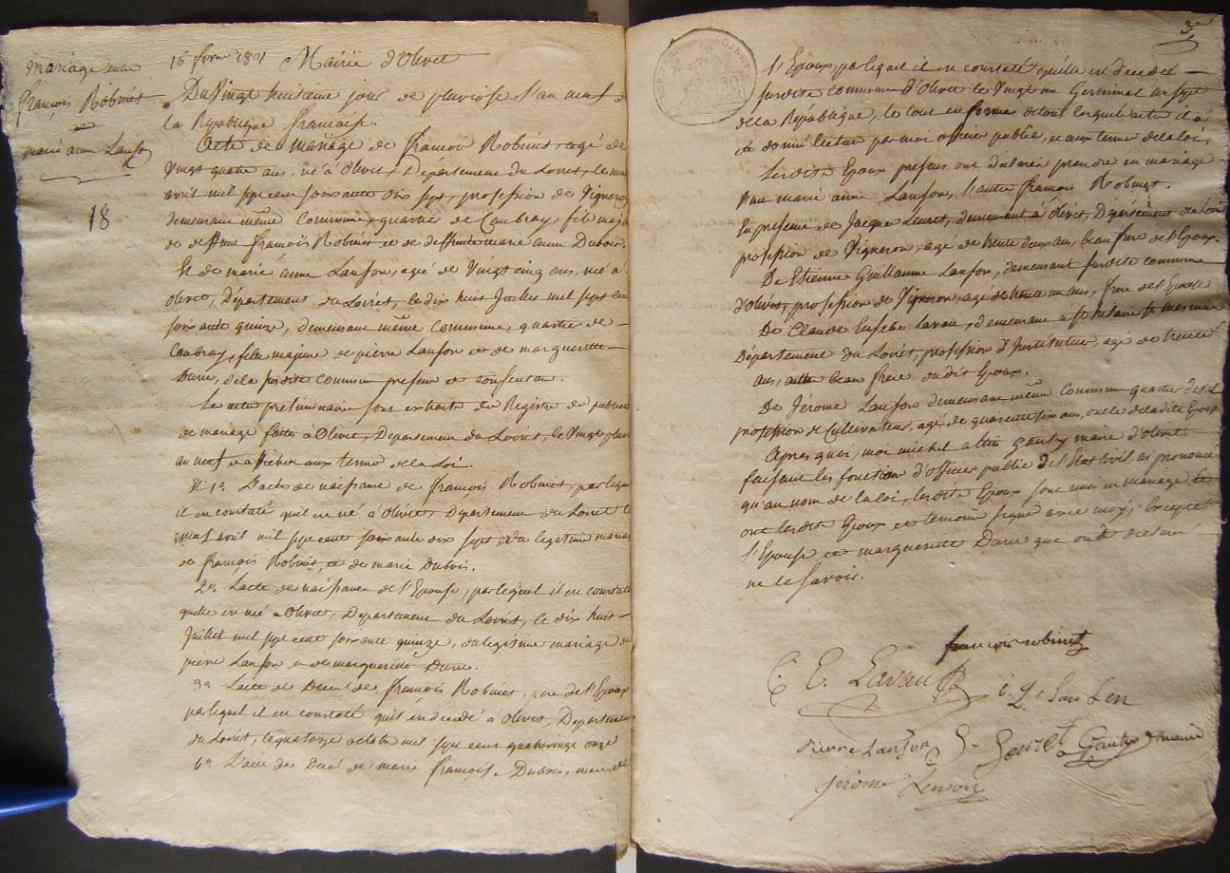 mariage entre
François Robinet
et
marie anne Lanson
18
16 fevr 1801 Mairie d'Olivet
Du Vingt huitieme jour de pluviose l'an neuf de
la République francaise.
Acte de mariage de François Robinet, agé de
Vingt quatre ans, né à Olivet, Département du Loiret, le neuf
avril mil sept cent soixante dix sept, profession de Vigneron,
demeurant même Commune, quartier de Coubray, fils majeur
de deffunt François Robinet et de deffunte marie anne Dubois.
Et de marie anne Lanson, agée de Vingt cinq ans, née à
Olivet, Département du Loiret, le dix huit Juillet mil sept cent
soixante quinze, demeurant même Commune, quartier de
Coubray, fille majeure de pierre Lanson et de marguerite
Darue, de la susdite commune presens et consentans.
Les actes preliminaires sont extraits des Registres des publications
de mariage faites à Olivet, Département du Loiret, le Vingt pluviose
an neuf et affichées aux termes de la Loi.
1º L'acte de naissance de François Robinet, par lequel
il est constaté qu'il est né à Olivet, Département du Loiret le
neuf avril mil sept cent soixante dix sept du legitime mariage
de françois Robinet, et de marie Dubois.
2º L'acte de naissance de l'Epouse, par lequel il est constaté
quelle est née à Olivet, Département du Loiret, le dix huit
Juillet mil sept cent soixante quinze, du legitime mariage de
pierre Lanson et de marguerite Darue.
3º L'acte de Décès de François Robinet, pere de l'Epoux
par lequel il est constaté qu'il est decedé à Olivet, Département
du Loiret, le quatorze octobre mil sept cent quatrevingt onze
L'acte de Décès de marie françoise Dubois, mere de
3
l'Epoux, par lequel il est constaté qu'elle est decedée
susdite commune d'Olivet le Vingt un Germinal an sept
de la République, le tout en forme de tous lesquels actes il a
été donné lecture par moi officier public, et aux termes de la loi,
Lesdits Epoux presens ont déclaré prendre en mariage
l'un marie anne Lanson, l'autre françois Robinet.
En presence de Jacque Leuret, demeurant à Olivet, Département du Loiret
profession de Vigneron, agé de trente deux ans, beau frere de l'Epoux.
De Etienne Guillaume Lanson, demeurant susdite commune
d'olivet, profession de Vigneron, agé de trente un ans, frere de l'Epouse
De Claude Eusebe Lavau, demeurant a st hilaire st mesmin
Département du Loiret, profession d'Instituteur, agé de trente
ans, beau frere dudit Epoux.
De Jérome Lanson demeurant même commune quartier
profession de Cultivateur, agé de quarante ans, oncle de ladite Epouse
Après quoi, moi michel gautry maire d'olivet
faisant les fonctions d'officier public de l'Etat Civil ai prononcé
qu'au nom de la loi, lesdits Epoux sont unis en mariage et
ont lesdits Epoux et temoins signé avec moi, excepté
l'Epouse et marguerite Darue que ont déclaré
ne le savoir.
françois robinet
C. E. Lavau
Pierre Lanson
Gautry maire
jerome Lanson